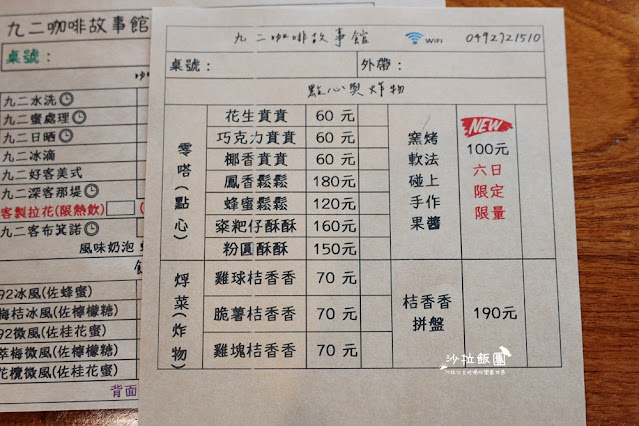 九二咖啡故事館
桌號：
九二水洗
九二蜜處理
九二日晒
九二冰滴
九二好客美式
九二深客那堤
客製拉花(限熱飲)
九二客布箕諾
風味奶泡
92冰風(佐蜂蜜)
梅桔冰風(佐檸檬糖)
92微風(佐桂花蜜)
萃梅微風(佐檸檬糖)
花欖微風(佐桂花蜜)
背面
九二咖啡故事館 WiFi 0492721510
桌號： 外帶：
點心與炸物
零嗒(點心)
花生賁賁 60 元
巧克力賁賁 60 元
椰香賁賁 60 元
鳳香鬆鬆 180元
蜂蜜鬆鬆 120元
粢粑仔酥酥 160元
粉圓酥酥 150元
窯烤
軟法
碰上
手作
果醬
NEW
100元
六日
限定
限量
烰菜(炸物)
雞球桔香香 70 元
脆薯桔香香 70 元
雞塊桔香香 70 元
桔香香
拼盤
190元
沙拉飯團